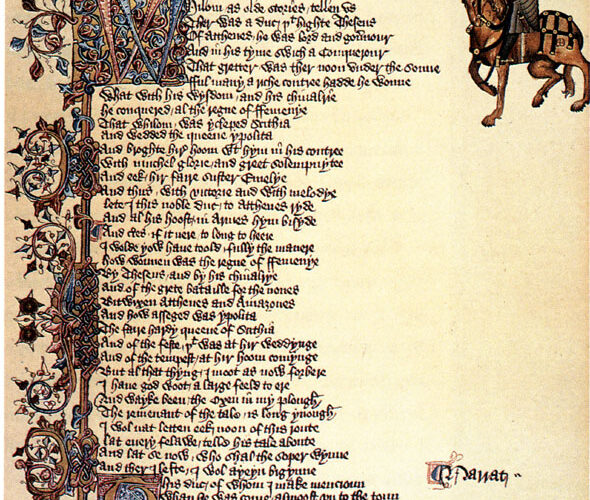 Whilom as olde stories tellen vs
Ther was a duc yᵗ highte Theseus
Of Atthenes he was lord and gouernour
And in his tyme swich a Conquerour
That gretter was ther noon vnder the sonne
fful many a riche contree hadde he wonne
What with his wysdom and his chiualrie
he conquered al the regne of ffemenye
That whilom was ycleped Scithia
And wedded the queene ypolita
And broghte hir hoom wᵗ hym in his contree
With muchel glorie and greet solempnytee
And eek hir faire suster Emelye
And thus with victorie and with melodye
lete I this noble duc to Atthenes ryde
And al his hoost in Armes hym bisyde
And certes if it nere to long to heere
I wolde yow haue toold fully the manere
how wonnen was the regne of ffemenye
By Theseus and by his chiualrye
And of the grete bataille for the nones
Bitwixen Atthenes and Amazones
And how asseged was ypolita
The faire hardy queene of Scithia
And of the feste yᵗ was at hir weddynge
And of the tempest at hir hoom comynge
But al that thyng I moot as now forbere
I haue god woot a large feeld to ere
And wayke been the Oxen in my plough
The remenant of the tale is long ynough
I wol nat letten eek noon of this route
lat euery felawe telle his tale aboute
And lat se now who shal the soper wynne
And ther I lefte I wol ayeyn bigynne
This duc of whom I make mencioun
Whan he was come almoost vn to the toun
Narrat